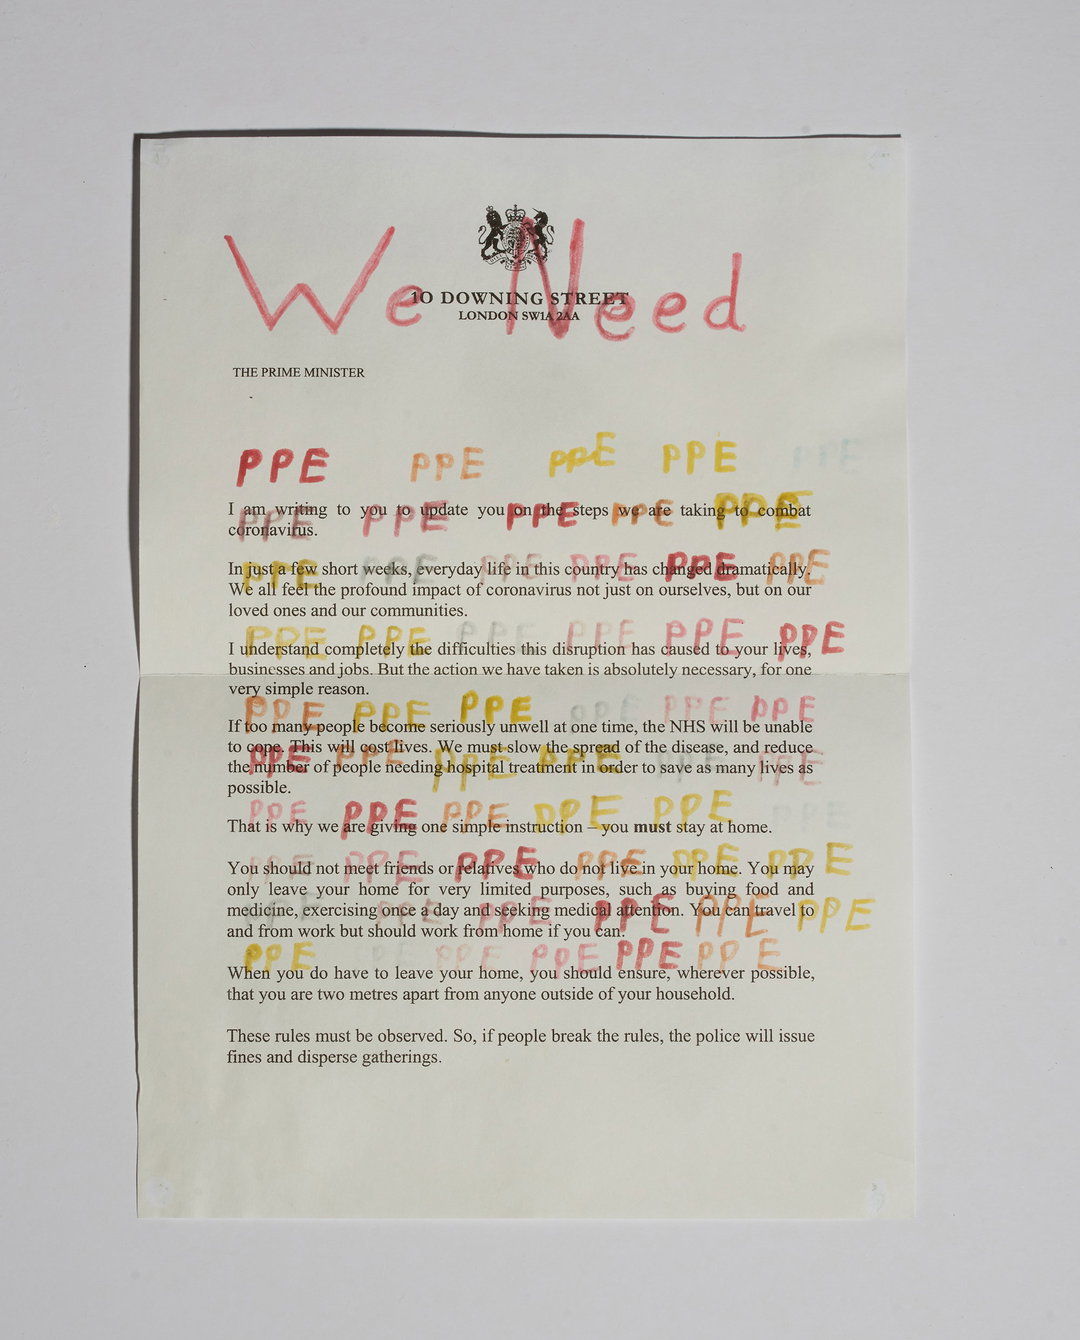 We Need
10 DOWNING STREET
LONDON SW1A 2AA
THE PRIME MINISTER
PPE PPE PPE PPE PPE
PPE PPE PPE PPE PPE
I am writing to you to update you on the steps we are taking to combat
coronavirus.
PPE PPE PPE PPE PPE PPE
In just a few short weeks, everyday life in this country has changed dramatically.
We all feel the profound impact of coronavirus not just on ourselves, but on our
loved ones and our communities.
PPE PPE PPE PPE PPE PPE
I understand completely the difficulties this disruption has caused to your lives,
businesses and jobs. But the action we have taken is absolutely necessary, for one
very simple reason.
PPE PPE PPE PPE PPE PPE
If too many people become seriously unwell at one time, the NHS will be unable
to cope. This will cost lives. We must slow the spread of the disease, and reduce
PPE PPE PPE PPE PPE PPE
the number of people needing hospital treatment in order to save as many lives as
possible.
PPE PPE PPE PPE PPE PPE
That is why we are giving one simple instruction – you must stay at home.
PPE PPE PPE PPE PPE PPE
You should not meet friends or relatives who do not live in your home. You may
only leave your home for very limited purposes, such as buying food and
medicine, exercising once a day and seeking medical attention. You can travel to
PPE PPE PPE PPE PPE PPE
and from work but should work from home if you can.
PPE PPE PPE PPE PPE
When you do have to leave your home, you should ensure, wherever possible,
that you are two metres apart from anyone outside of your household.
These rules must be observed. So, if people break the rules, the police will issue
fines and disperse gatherings.